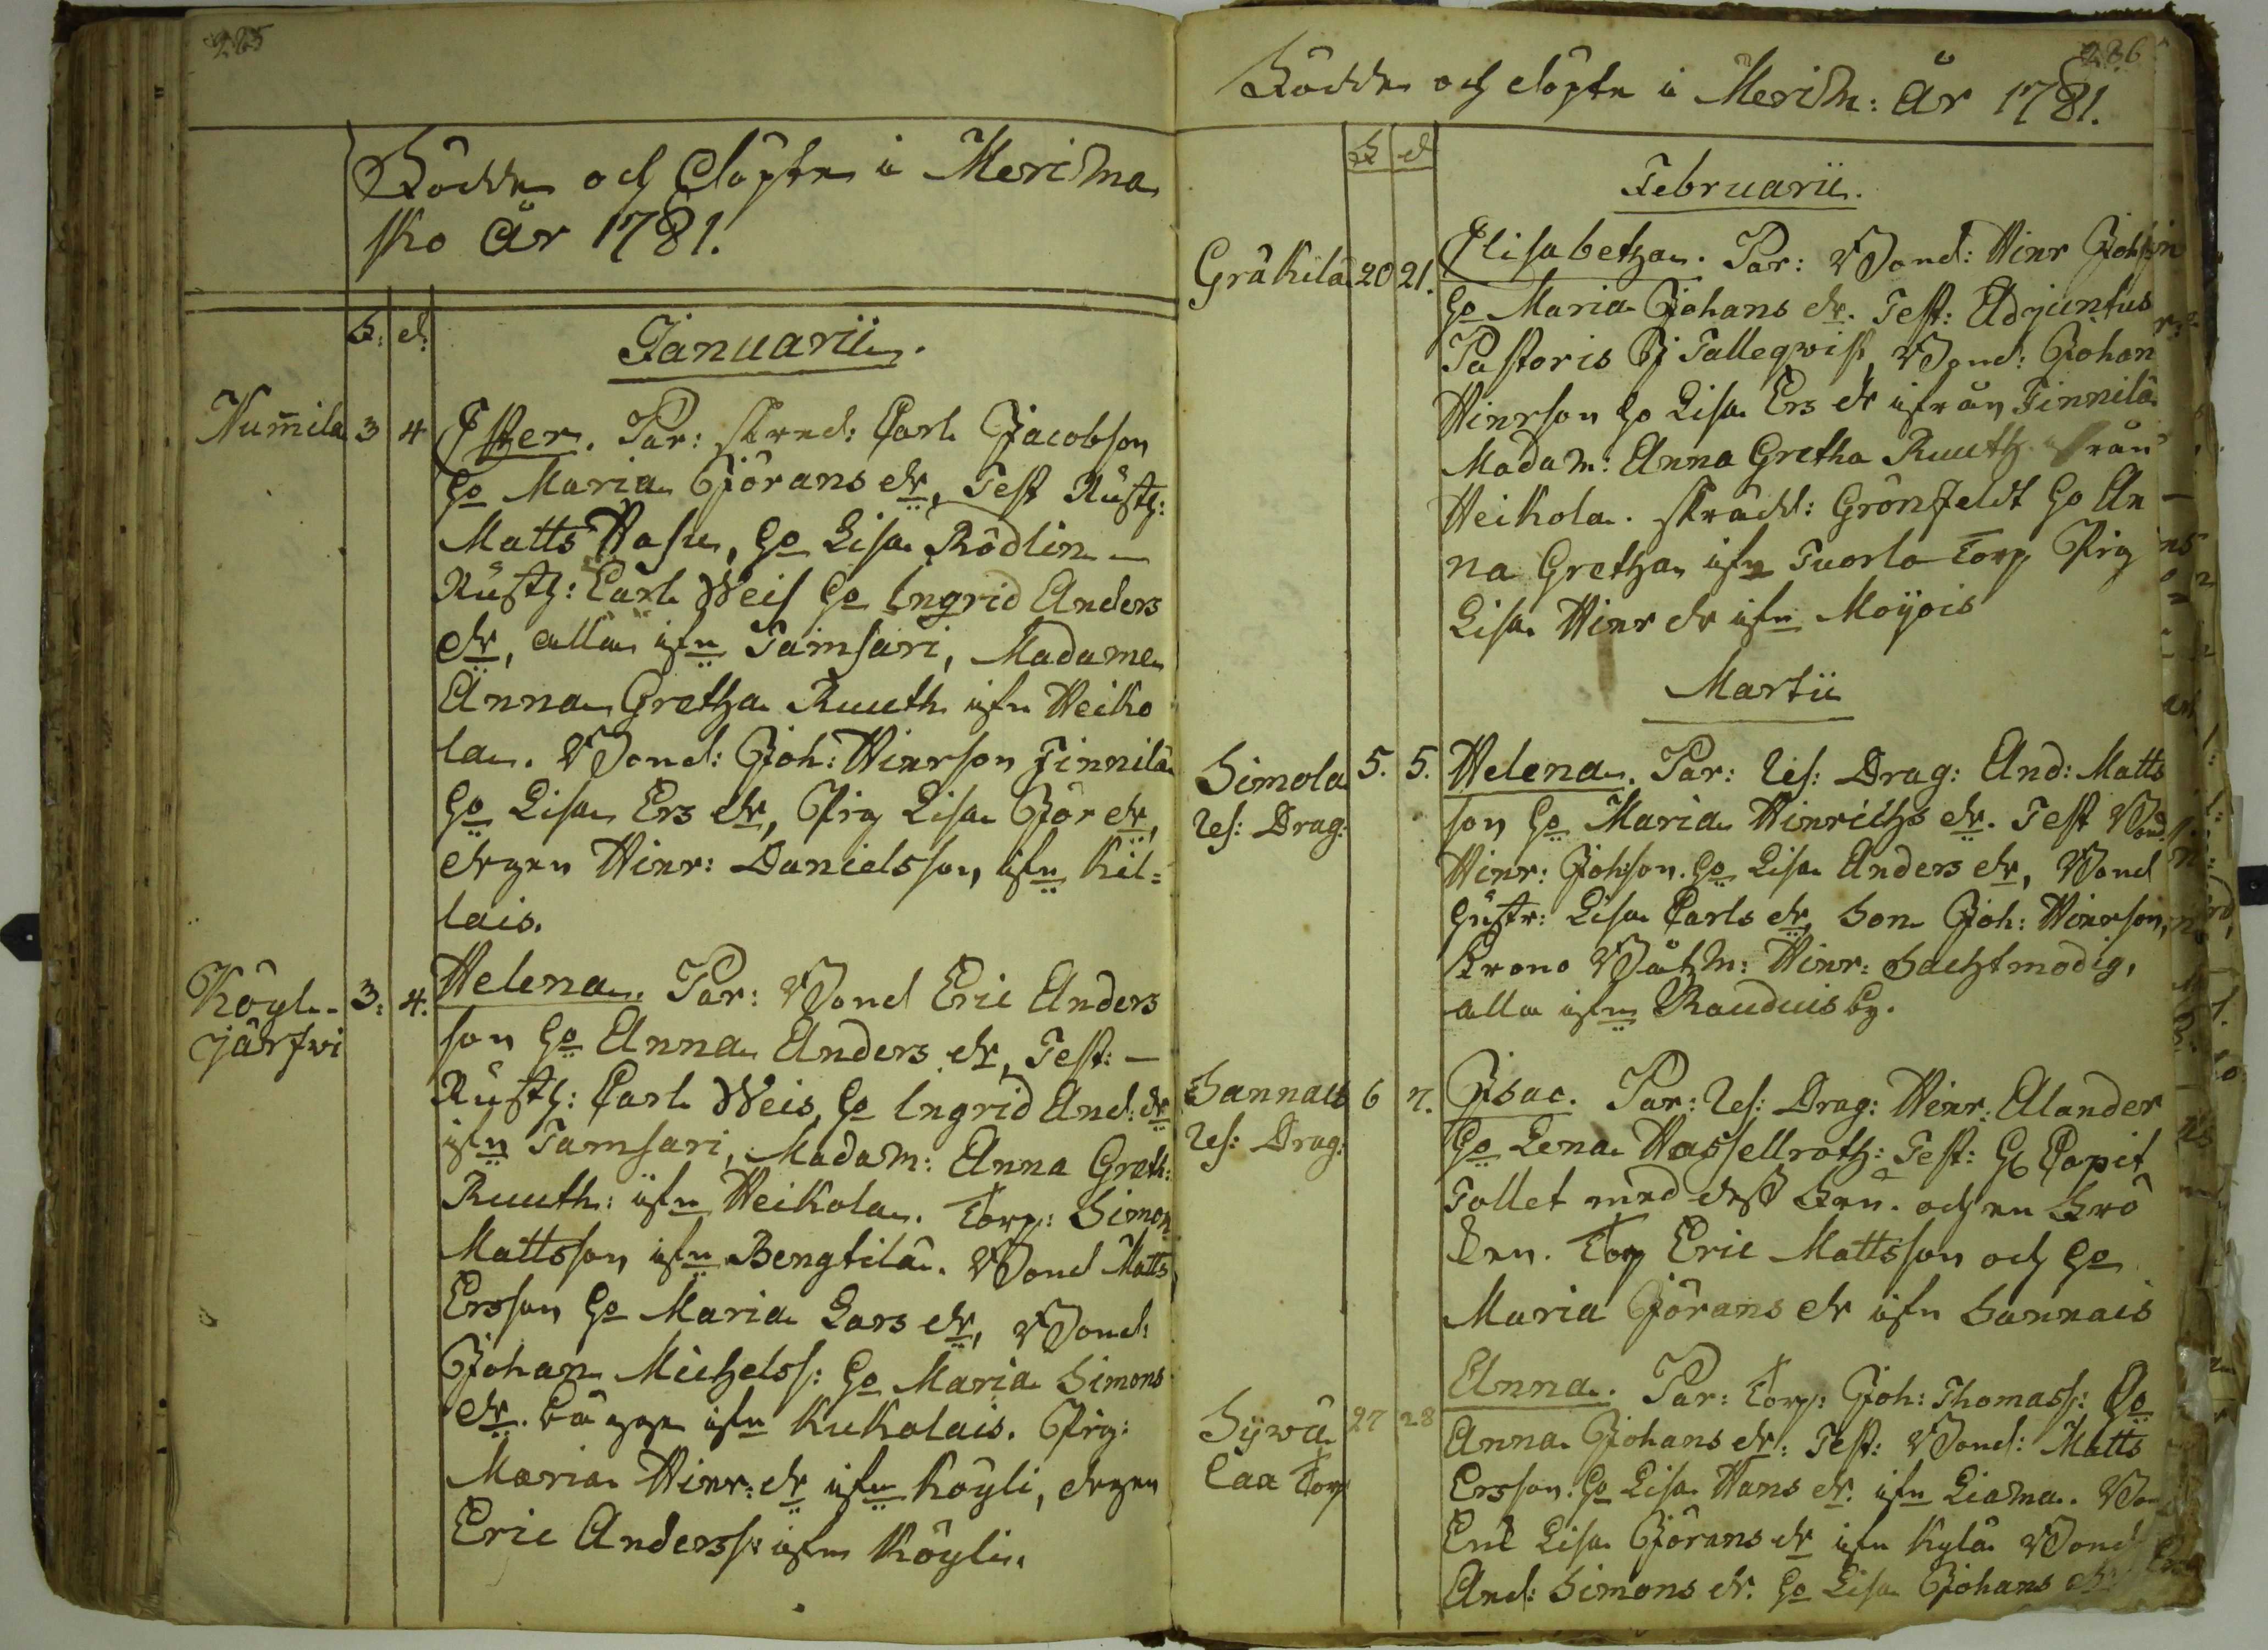 265
Födde och Döpte i Merisma
sko År 1781.
F: d:
Januarii.
Num̃ila 3 4 Ester. Par: Skred: Carl Jacobson
ho Maria Görans dr, Test Rusth:
Matts Hasu, ho Lisa Rödlin —
Rusth: Carl Weis ho Ingrid Anders
dr, alla ifn Tamsari, Madame
Anna Gretha Ruuth ifn Heiko
la. Bond: Joh: Hinrson Finnilä
ho Lisa Ers dr, Pig Lisa Jör dr,
drgen Hinr: Danielsson, ifn Kil=
lais.
Köyl- 3: 4. Helena. Par: Bond Eric Anders
järfwi son ho Anna Anders dr, Test: —
Rusth: Carl Weis, ho Ingrid And: dr
ifn Tamsari, Madam: Anna Greth:
Ruuth: ifn Heikola. Torp: Simon
Mattsson ifn Bengtilä. Bond Matts
Ersson ho Maria Lars dr, Bond:
Johan Michelss: ho Maria Simons
dr. bägge ifn Kukolais. Pig:
Maria Hinr: dr ifn Köyli, drgen
Eric Anderss: ifn Köyli.
266
Födde och döpte i Merism: År 1781.
F d
Februarii.
Gräkilä 20 21. Elisabetha. Par: Bond: Hinr Johsson
ho Maria Johans dr. Test: Adjunctus
Pastoris J Talleqwist, Bond: Johan
Hinrson ho Lisa Ers dr ifrån Finnilä
Madam: Anna Gretha Ruuth ifrån
Heikola. Skrädd: Grönfeldt ho An
na Gretha ifn Tuorla Torp Pig
Lisa Hinr dr ifn Moijois
Martii
Simola 5. 5. Helena. Par: Res: Drag: And: Matts
Res: Drag: son ho Maria Hinrichs dr. Test Bond.
Hinr: Johson. ho Lisa Anders dr, Bond
hustr: Lisa Carls dr, Son Joh: Hinrson,
Krono Båtzm: Hinr: Sachtmodig,
alla ifn Rauduisby.
Sannais 6 7. Isac. Par: Res: Drag: Hinr: Alander
Res: Drag: ho Lena Hassellroth: Test: H Capit
Tollet med dess Fru. och en Frö
ken. Torp Eric Mattsson och ho
Maria Görans dr ifn Sannais
Sywä 27 28 Anna. Par: Torp: Joh: Thomass: ho
Laa Torp Anna Johans dr: Test: Bond: Matts
Ersson. ho Lisa Hans dr. ifn Liama. Bon
Enk Lisa Görans dr ifn Kylä Bond
And: Simons dr. ho Lisa Johans dr